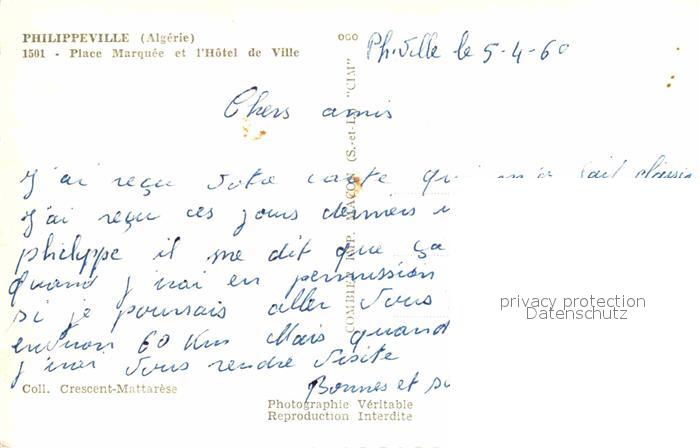 PHILIPPEVILLE (Algérie)
1501 - Place Marquée et l'Hôtel de Ville
OGO
Ph.ville le 5-4-60
Chers amis
J'ai reçu votre carte qui m'a fait plaisir
J'ai reçu ces jours derniers
philippe il me dit que ça
quand j'irai en permission
si je pourrais aller vous
environ 60 Km Mais quand
j'irai vous rendre visite
Bonnes et
COMBIER IMP. MACON (S.-et-L.) "CIM"
privacy protection
Datenschutz
Coll. Crescent-Mattarèse
Photographie Véritable
Reproduction Interdite